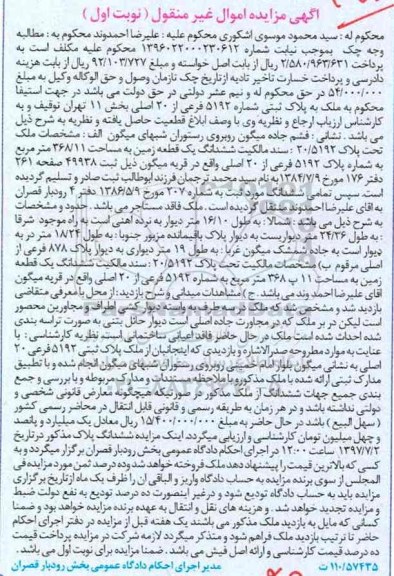 آگهی مزایده اموال غیر منقول ( نوبت اول )
محکوم له : سید محمود موسوی اشکوری محکوم علیه : علیرضا احمدوند محکوم به : مطالبه
وجه چک بموجب نیابت شماره ۱۳۹۶۰۲۲۰۰۰۲۳۰۶۱۲ محکوم علیه مکلف است به
پرداخت ۲/۵۸۰/۹۶۳/۶۳۱ ریال از بابت اصل خواسته و مبلغ ۹۲/۱۰۳/۷۲۷ ریال از بابت هزینه
دادرسی و پرداخت خسارت تاخیر تادیه از تاریخ چک تازمان وصول و حق الوکاله وکیل به مبلغ
۵۴/۰۰۰/۰۰۰ در حق محکوم له و نیم عشر دولتی در حق دولت می باشد در جهت استیفا
محکوم به ملک به پلاک ثبتی شماره ۵۱۹۲ فرعی از ۲۰ اصلی بخش ۱۱ تهران توقیف و به
کارشناس ارزیاب ارجاع و نظریه وی با وصف ابلاغ قطعیت حاصل یافته و نظریه به شرح ذیل
می باشد . نشانی : قشم جاده میگون روبروی رستوران شبهای میگون الف : مشخصات ملک
تحت پلاک ۲۰/۵۱۹۲ : سند مالکیت ششدانگ یک قطعه زمین به مساحت ۳۶۸/۱۱ متر مربع
به شماره پلاک ۵۱۹۲ فرعی از ۲۰ اصلی واقع در قریه میگون ذیل ثبت ۴۹۹۳۸ صفحه ۲۶۱
دفتر ۱۷۶ مورخ ۱۳۸۴/۷/۹ به نام سید محمد ترجمان فرزند ابوطالب ثبت صادر و تسلیم گردیده
است. سپس تمامی مورد ثبت برابر سند قطعی شماره ۲۰۷ مورخ ۱۳۸۶/۵/۹ دفتر ۴ رودبار قصران
به آقای علیرضا احمدوند منتقل گردیده است . ملک فاقد مستاجر می باشد . حدود و مشخصات
به شرح ذیل می باشد : شمالا : به طول ۱۶/۱۰ متر دیوار به نرده آهنی است به راه موجود شرقا
: به طول ۲۴/۳۶ متر دیواریست به دیوار پلاک باقیمانده مزبور جنوبا : به طول ۱۸/۲۴ متر در به
دیوار است به جاده شمشک میگون غربا : به طول ۱۹ متر دیواری به دیوار پلاک ۸۷۸ فرعی از
اصلی مرقوم ب) مشخصات مالکیت تحت پلاک ۲۰/۵۱۹۲ : سند مالکیت ششدانگ یک قطعه
زمین به مساحت ۱۱ پ ۳۶۸ متر مربع به شماره ۵۱۹۲ فرعی از ۲۰ اصلی واقع در قریه میگون
آقای علیرضا احمد وند می باشد . ج ) مشاهدات میدانی و شرح بازدید : از محل با معرفی متقاضی
بازدید شد و مشخص گردید که ملک از سه طرف به وسیله دیوار کشی اطراف و مجاورین محصور
است لیکن در بر ملک که در مجاورت جاده اصلی است دیوار حائل بتنی به صورت تراسه بندی
شده احداث شده است ملک در حال حاضر فاقد اعیانی ساختمانی است. نظریه کارشناسی : با
عنایت به موارد مطروحه صدر الاشاره و بازدیدی که اینجانب از ملک پلاک ثبتی ۵۱۹۲ فرعی ۲۰
اصلی به نشانی میگون بلوار امام خمینی روبروی رستوران شبهای میگون انجام شده و با تطبیق
مدارک ثبتی ارائه شده با ملک مذکور و با ملاحظه مستندات و مدارک مربوطه و با بررسی و جمع
بندی جمیع جهات ششدانگ از ملک مذکور در صورتیکه هیچگونه معارض قانونی شخصی و
دولتی نداشته باشد و در هر زمان به طریقه رسمی و قانونی قابل انتقال در محاضر رسمی کشور
( سهل البیع ) باشد در حال حاضر به مبلغ ۱۵/۴۰۰/۰۰۰/۰۰۰ ریال معادل یک میلیارد و پانصد
و چهل میلیون تومان کارشناسی و ارزیابی میگردد. اینک مزایده ششدانگ پلاک مذکور در تاریخ
۱۳۹۷/۷/۲ ساعت ۱۲:۰۰ در اجرای احکام دادگاه عمومی بخش رودبار قصران برگزار میگردد و به
کسی که بالاترین قیمت را پیشنهاد دهد ملک فروخته خواهد شد و ده درصد ثمن مورد مزایده فی
المجلس از سوی برنده مزایده به حساب دادگاه واریز و الباقی آن را ظرف یک ماه از تاریخ برگزاری
مزایده باید به حساب دادگاه تودیع شود و درغیر اینصورت ده درصد تودیع به نفع دولت ضبط
و مزایده تجدید خواهد شد . و هزینه های نقل و انتقال به عهده برنده مزایده خواهد بود و ضمنا
کسانی که مایل به بازدید ملک مذکور می باشند یک هفته قبل از مزایده در دفتر اجرای احکام
حاضر تا ترتیب بازدید ملک فراهم شود و متذکر میگردد لازمه شرکت در مزایده پرداخت قیمت
ده درصد قیمت کارشناسی و ارائه اصل فیش می باشد . ضمنا مزایده برای نوبت اول می باشد .
۱۱۰/۵۷۴۳۵ ت مدیر اجرای احکام دادگاه عمومی بخش رودبار قصران